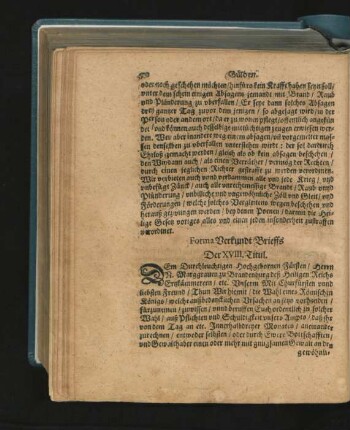 Gülden.
oder noch geschehen möchten hinfüro kein Krafft haben seyn soll/
unter dem schein einigen Absagens jemandt mit Brand/ Raub
und Plünderung zu oberfallen/ Es seye dann solches Absagen
drey gantzer Tag zuvor dem jenigen/ so abgesagt wird/ in der
Person oder andern ort/ da er zu wonen pflegt/ offentlich angekün
det/ und können auch desselbige mit tüchtigen zeugen erwiesen wer-
den. Wer aber in andere weg ein en absagen/ und vorgemelter mas-
sen denselben zu oberfallen unterstehen wirdt/ der sol dardurch
Ehrloß gemacht werden/ gleich als ob kein absagen beschehen/
den Wir dann auch/ als einen Verräther/ vermög der Rechten/
durch einen jeglichen Richter gestrafft zu werden verordnen.
Wir verbieten auch und verdammen alle und jede Krieg/ und
unbefügte Zänck/ auch alle unrechtmessige Brände/ Raub und
Plünderung/ unbilliche und ungewöhnliche Zöll und Gleit/ und
Förderungen/ welche solches Vergleitens wegen beschehen und
herauß gezwungen werden/ bey denen Poenen/ darmit die Hei-
lige Gesetz voriges alles und eines jeden insonderheit zustraffen
verordnet.
Forma Verkündt Brieffs
Der XVIII. Titul.
DEm Durchleuchtigen Hochgebornen Fürsten/ Herrn
N. Marggraven zu Brandenburg des Heiligen Reichs
Ertzkämmerern/ etc. Unserm Mit Churfürsten und
liebsten Freund/ Thun Wir hiemit/ die Wahl eines Römischen
Königs/ welche auß beweglichen Ursachen an jetzo vorhanden/
fürzunemen/ zuwissen/ und beruffen Euch ordentlich zu solcher
Wahl/ auß Pflichten und Schuldigkeit unsers Ampts/ daß ihr
von dem Tag an etc. Innerhalb dreyer Monaten/ aneinander
zurechnen/ entweder selbsten/ oder durch Ewere Bottschafften/
und Gewalthaber einen oder mehr mit gnugsamen Gewalt an den
gewöhnli-